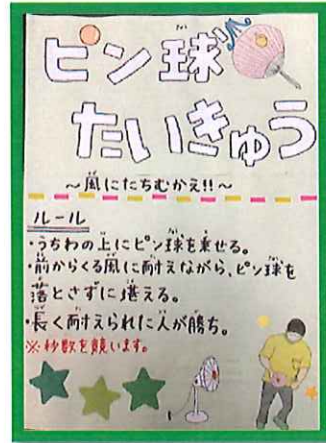 ピン球
たいきゅう
～風にたちむかえ!!～
ルール
・うちわの上にピン球を乗せる。
・前からくる風に耐えながら、ピン球を
落とさずに堪える。
・長く耐えられた人が勝ち。
※秒数を競います。